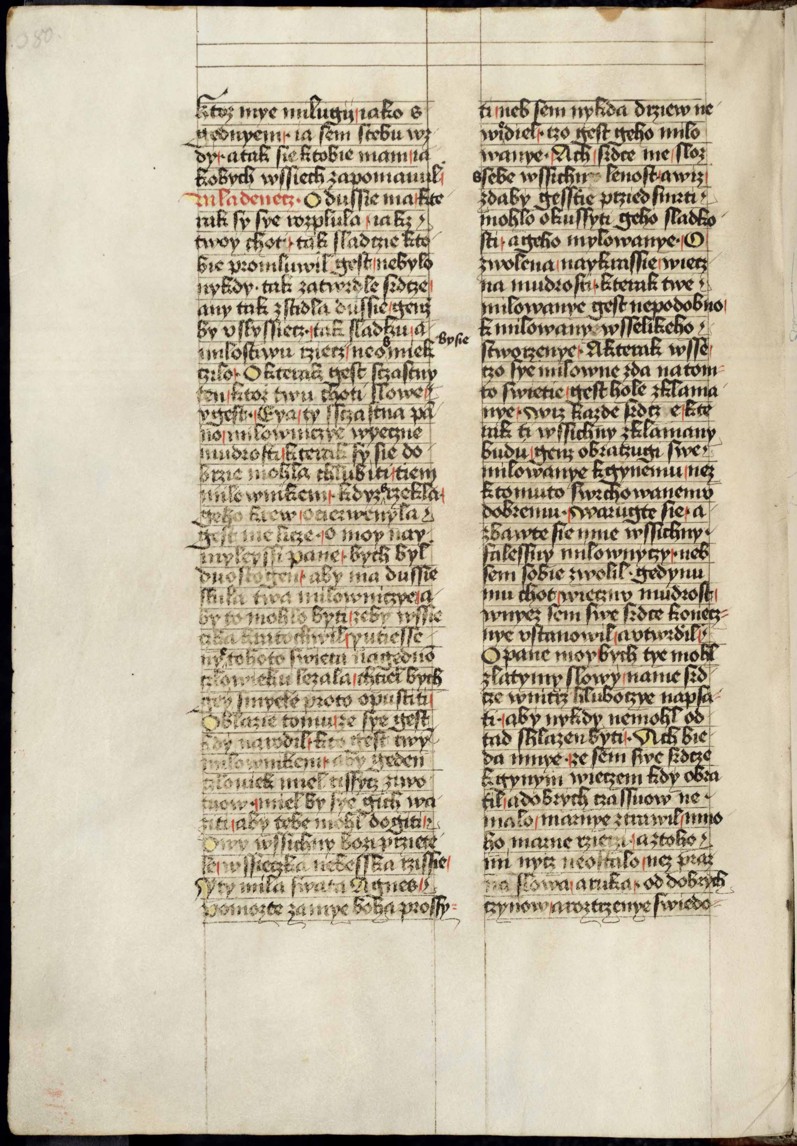 ktoz mye milugij iako s
gednyem ia sem stebu wz
dy a tak sie ktobie mam ia
kobych wssiech zapomanul
Mladenecz O dussie ma kte
rak sy sye rozplula iakz
twoy chot tak sladcze kto
bie promluwil gest nebylo
nykdy tak zatwrdle srdcze
any tak zstidla dussie genz
by vslyssiecz tak sladku a
milostiwu rziecz neosmiek bysie
czilo O kterak gest sczastny
ten ktoz twu choti slowe
v gest Eya ty sczastna pa
no milowniczye wyeczne
mudrosti kterak sy sie do
brzie mohla chlubiti tiem
milownikem kdyz rzekla
geho krew oczerwenyla
gest me licze O moy nay
myleyssi pane bych byl
duostogen aby ma dussie
slula twa milowniczye a
by to mohlo byti zeby wssie
cka kratochwil y utiesse
nye tohoto swieta na geduo
czlowieku lezala chtiel bych
gey smyele proto opustiti
O blazie tomu ze sye gest
kdy narodil kto gest twy
milownikem aby geden
czlowiek miel tissycz ziwo
tuow miel by sye gich wa
ziti aby tebe mohl dogiti
Owy wssichni bozi prziete
le wssieczka nebesska rzissie
y ty mila swata Agnes
Pomozte za mye boha prossy
ti neb sem nykda drziew ne
widiel czo gest geho milo
wanye Ach srdce me sloz
s sebe wssichnu lenost a wiz
zdaby gesstie przied smrti
mohlo okussyti geho sladko
sti a geho mylowanye O
zwolena naykrassie wiecz
na mudrosti kterak twe
milowanye gest nepodobno
k milowany wsselikeho
stworzenye A kterak wsse
czo sye milowne zda na tom
to swietie gest hole zklama
nye wiz kazde srdcze kte
rak ti wssichny zklamany
budu genz obraczugi swe
milowanye k gynemu nez
k tomuto swrchowanemu
dobremu Warugte sie a
zbawte sie mne wssichny
falessny milownyczy neb
sem sobie zwolil gedynu
mu chot wiecznu mudrost
w nyez sem swe srdce konecz
nye vstanowil a vtwrdil
O pane moy bych tye mohl
zlatymy slowy na me srd
cze wnitrz hlubocye napsa
ti aby nykdy nemohl od
tad shlazen byti Ach bie
da mnye ze sem swe srdcze
k gynym wieczem kdy obra
til a dobrych czassuow ne
malo marnye ztrawil mno
ho marne rzieczi a z toho
mi nycz neostalo nez praz
na slowa a ruka od dobrych
czynow a roztrzenye swiedo